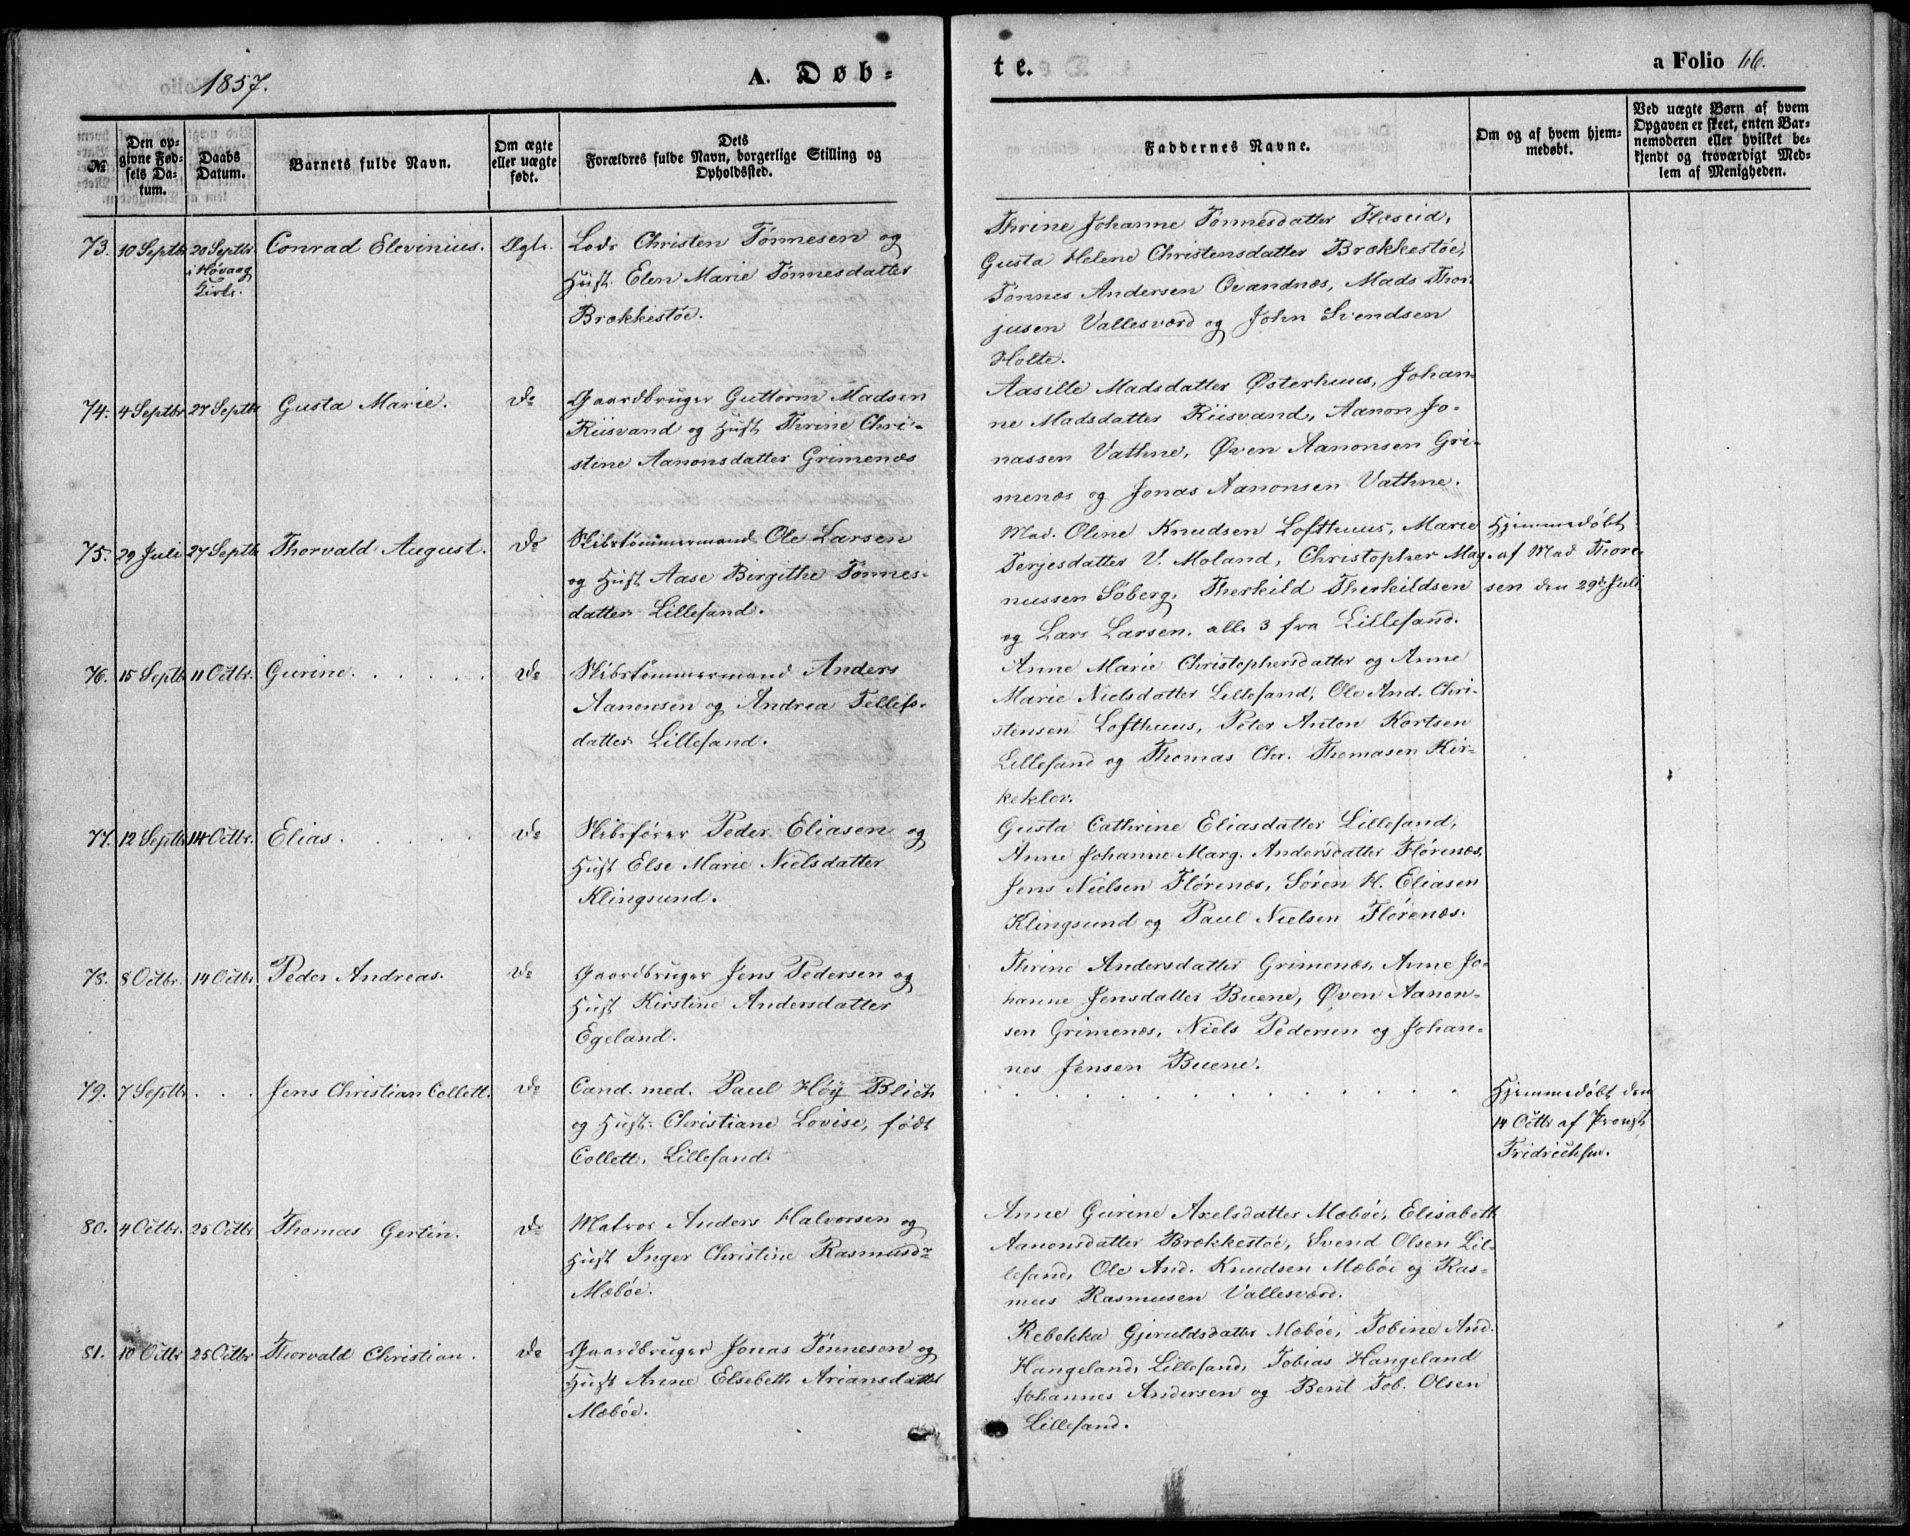 1857.
A. Døb-
№
Den op-
givne Fød-
sels Da-
tum.
Daabs
Datum.
Barnets fulde Navn.
Om ægte
eller uægte
født.
Dets
Forældres fulde Navn, borgerlige Stilling og
Opholdssted.
73. 10 Septbr 20 Septbr. Conrad Elevinius. Ægte. Lods Christen Tønnesen og
i Høvaag Hust. Elen Marie Tønnesdatter
Kirke. Brækkestøe.
74. 4 Septbr 27 Septbr Gusta Marie. Do Gaardbruger Guttorm Madsen
Riisvand og Hust Thrine Chri-
stine Aanonsdatter Grimenæs
75. 29 Juli 27 Septbr Thorvald August. Do Skibstømmermand Ole Larsen
og Hust Aase Birgithe Tønnes-
datter Lillesand.
76. 15 Septbr 11 Octbr. Gurine. Do Skibstømmermand Anders
Aanonsen og Andrea Tellefs-
datter Lillesand.
77. 12 Septbr 14 Octbr. Elias. Do Skibsfører Peder Eliasen og
Hust Else Marie Nielsdatter
Klingsund.
78. 8 Octbr. 14 Octbr. Peder Andreas. Do Gaardbruger Jens Pedersen og
Hust Kirstine Andersdatter
Egeland.
79. 7 Septbr . . . Jens Christian Collett. Do Cand. med. Paul Høy Blich
og Hust. Christiane Lovise, født
Collett. Lillesand.
80. 4 Octbr. 25 Octbr Thomas Gertin. Do Matros Anders Halvorsen og
Hust Inger Christine Rasmusdr
Mæbøe.
81. 10 Octbr 25 Octbr Thorvald Christian. Do Gaardbruger Jonas Tønnesen og
Hust Anne Elsebeth Ariansdatter
Mæbøe.
te.
a Folio 66.
Faddernes Navne.
Om og af hvem hjem-
medøbt.
Ved uægte Børn af hvem
Opgaven er skeet, enten Bar-
nemoderen eller hvilket be-
kjendt og troværdigt Med-
lem af Menigheden.
Thrine Johanne Tønnesdatter Flæseid,
Gusta Helene Christensdatter Brækkestøe,
Tønnes Andersen Qvandnæs, Mads Thor-
jusen Vallesværd og John Svendsen
Holte.
Aasille Madsdatter Østerhuus, Johan-
ne Madsdatter Riisvand, Aanon Jo-
nassen Vathne, Øven Aanonsen Gri-
menæs og Jonas Aanonsen Vathne.
Mad. Oline Knudsen Lofthuus, Marie Hjemmedøbt
Terjesdatter V. Moland, Christopher Mag- af Mad Thore-
nussen Søberg, Therkild Therkildsen sen den 29de Juli
og Lars Larsen, alle 3 fra Lillesand.
Anne Marie Christophersdatter og Anne
Marie Nielsdatter Lillesand, Ole And. Chri-
stensen Lofthuus, Peter Anton Kortsen
Lillesand og Thomas Chr. Thomasen Kir-
kekler.
Gusta Cathrine Eliasdatter Lillesand,
Anne Johanne Marg. Andersdatter Flørenæs,
Jens Nielsen Flørenæs, Søren H. Eliasen
Klingsund og Paul Nielsen Flørenæs.
Thrine Andersdatter Grimenæs, Anne Jo-
hanne Jensdatter Buene, Øven Aanon-
sen Grimenæs, Niels Pedersen og Johan-
nes Jensen Buene.
Hjemmedøbt den
14 Octbr af Provst
Fridrichsen.
Anne Gurine Axelsdatter Mæbøe, Elisabeth
Aanonsdatter Brækkestøe, Svend Olsen Lil-
lesand, Ole And. Knudsen Mæbøe og Ras-
mus Rasmusen Vallesværd.
Rebekka Gjeruldsdatter Mæbøe, Tobine And.
Hangeland, Lillesand, Tobias Hangeland
Johannes Andersen og Berit Tob. Olsen
Lillesand.